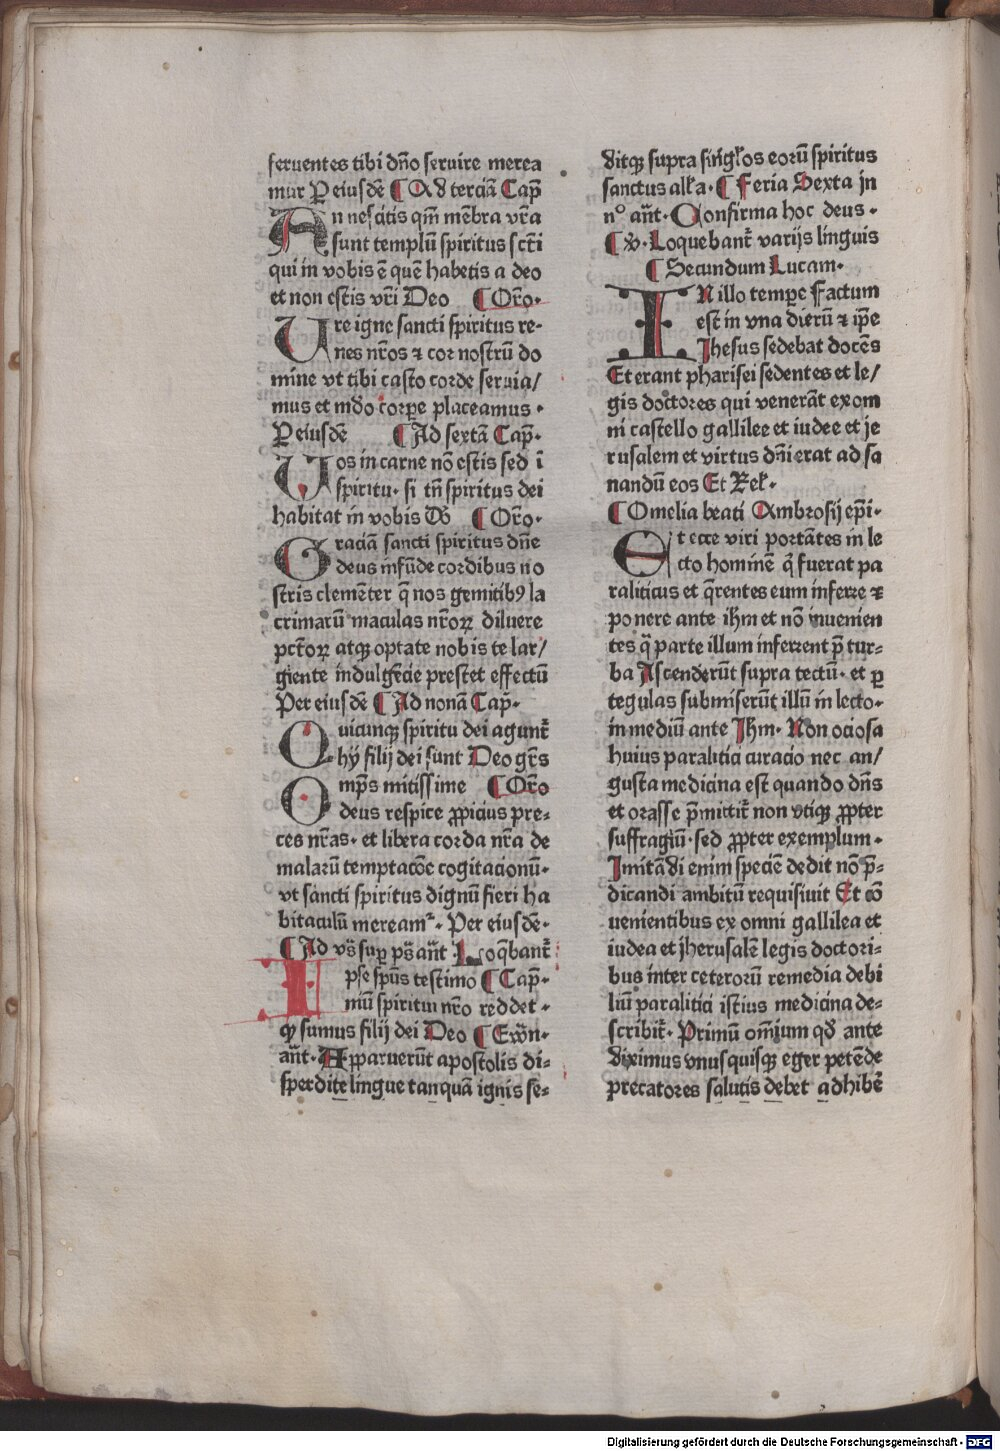 feruentes tibi dn̄o seruire merea
mur ꝑ eiusdē ¶ Ad terciā Cap̄
An nescitis qm̄ mēbra vr̄a
sunt templū spiritus sct̄i
qui in vobis ē quē habetis a deo
et non estis vr̄i Deo ¶ Or̄o·
Ure igne sancti spiritus re-
nes nr̄os ⁊ cor nostrū do
mine vt tibi casto corde seruia/
mus et mūdo corpe placeamus·
Ꝑ eiusdē ¶ Ad sextā Cap̄·
Uos in carne nō estis sed ī
spiritu· si tn̄ spiritus dei
habitat in vobis Do ¶ Or̄o·
Graciā sancti spiritus dn̄e
deus infūde cordibus no
stris clemēter q̄ nos gemitibꝯ la
crimarū maculas nr̄oꝝ diluere
pct̄oꝝ atqꝫ optate nobis te lar/
giente indulgēcie prestet effectū
Per eiusdē ¶ Ad nonā Cap̄·
Quicunqꝫ spiritu dei agunt᷑
hy̆ filij dei sunt Deo gr̄s
Omp̄s mitissime ¶ Or̄o
deus respice ꝓpicius pre-
ces nr̄as· et libera corda nr̄a de
malarū temptacōe cogitacionū·
vt sancti spiritus dignū fieri ha
bitaculū meream᷑· Per eiusdē·
¶ Ad vs̄ suꝑ ps̄ an̄t Loq̄bant᷑
Ipse sp̄us testimo ¶ Cap̄·
niū spiritui nr̄o reddet·
ꝙ sumus filij dei Deo ¶ Ewn̄·
an̄t· Apparuerūt apostolis di-
sperdite lingue tanquā ignis se-
ditqꝫ supra singl̓os eorū spiritus
sanctus all̓a· ¶ Feria Sexta jn
n° an̄t· Confirma hoc deus·
¶ v̄· Loquebant᷑ varijs linguis
¶ Secundum Lucam·
IN illo tempe Factum
est in vna dierū ⁊ ip̄e
Jhesus sedebat docēs
Et erant pharisei sedentes et le/
gis doctores qui venerāt ex om
ni castello gallilee et iudee et je
rusalem et virtus dn̄i erat ad sa
nandū eos Et Rel̓·
¶ Omelia beati Ambrosij ep̄i·
Et ecce viri portātes in le
cto hominē q̄ fuerat pa
raliticus et q̄rentes eum inferre ⁊
ponere ante ih̄m et nō inuenien
tes q̄ parte illum inferrent p̄ tur-
ba Ascenderūt supra tectū· et ꝑ
tegulas submiserūt illū in lecto·
in mediū ante Jh̄m· Non ociosa
huius paralitici curacio nec an/
gusta medicina est quando dn̄s
et orasse p̄mittit᷑ non vtiqꝫ ꝓpter
suffragiū· sed ꝓpter exemplum·
Imitādi enim speciē dedit nō p̄-
dicandi ambitū requisiuit Et cō
uenientibus ex omni gallilea et
iudea et jherusalē legis doctori-
bus inter ceterorū remedia debi
liū paralitici istius medicina de-
scribit᷑· Primū om̄ium qd̄ ante
diximus vnusquisqꝫ eger petēde
precatores salutis debet adhibē
Digitalisierung gefördert durch die Deutsche Forschungsgemeinschaft - DFG